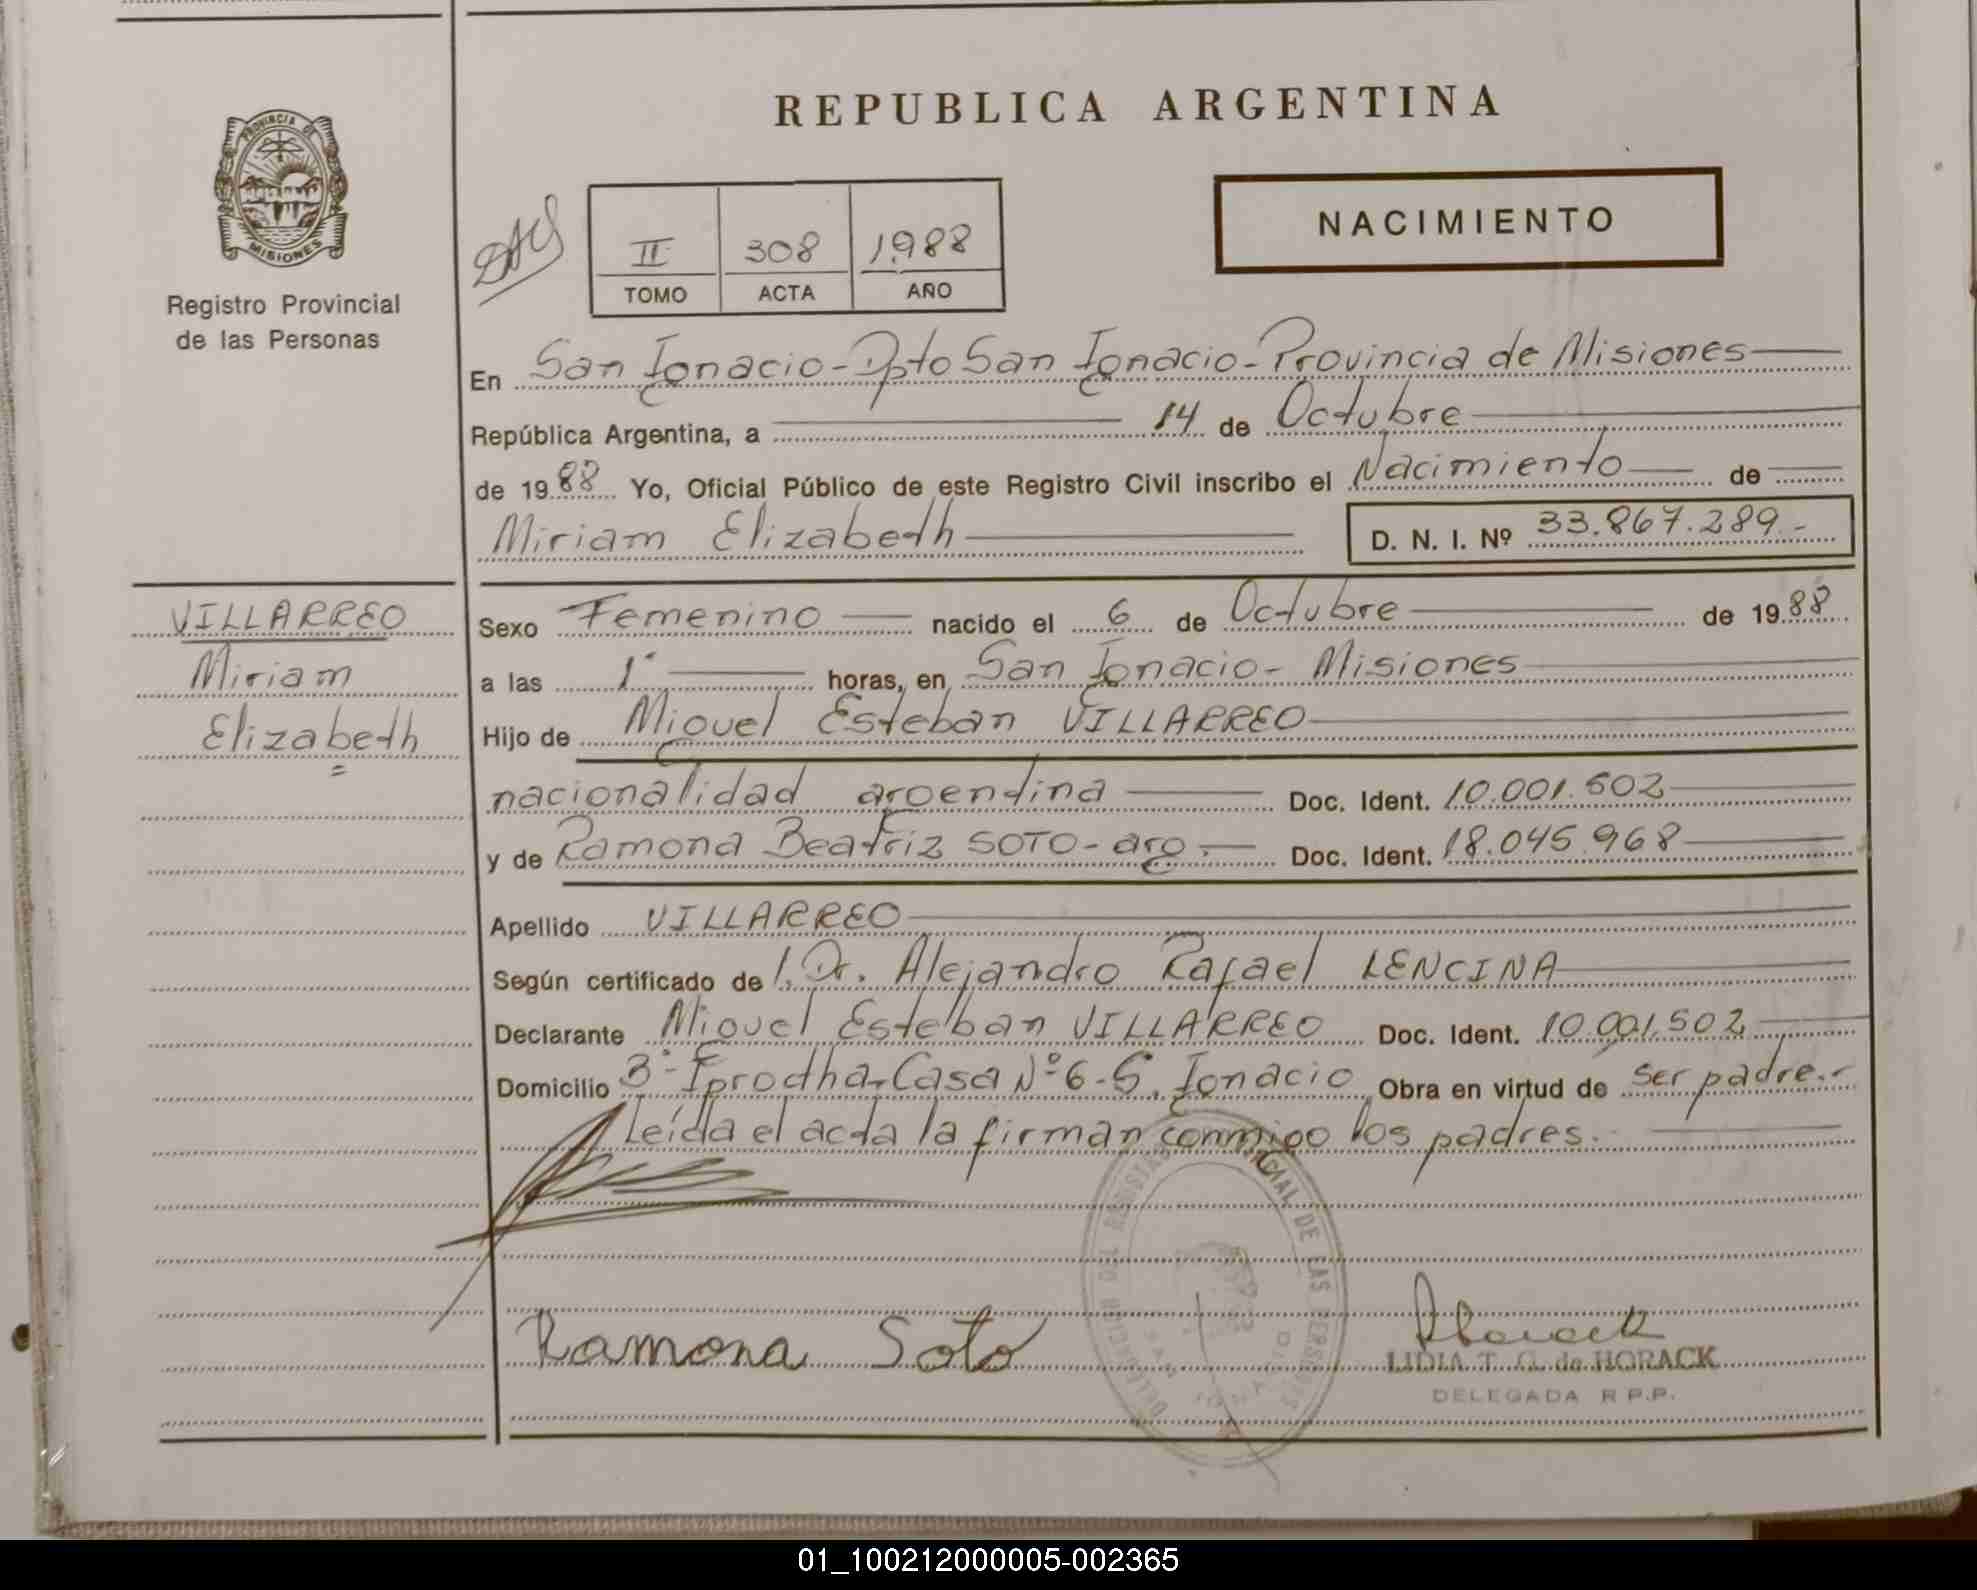 REPUBLICA ARGENTINA
PROVINCIA DE
MISIONES
Registro Provincial
de las Personas
NACIMIENTO
II 308 1.988
TOMO ACTA AÑO
En San Ignacio - Dpto San Ignacio - Provincia de Misiones
República Argentina, a 14 de Octubre
de 1988 Yo, Oficial Público de este Registro Civil inscribo el Nacimiento de
Miriam Elizabeth D. N. I. Nº 33.867.289.-
VILLARREO
Miriam
Elizabeth
Sexo Femenino nacido el 6 de Octubre de 1988
a las 1 horas, en San Ignacio - Misiones
Hijo de Miguel Esteban VILLARREO
nacionalidad argentina Doc. Ident. 10.001.502
y de Ramona Beatriz SOTO - arg. Doc. Ident. 18.045.968
Apellido VILLARREO
Según certificado de Dr. Alejandro Rafael LENCINA
Declarante Miguel Esteban VILLARREO Doc. Ident. 10.001.502
Domicilio 3º Iprodha. Casa Nº 6 - S. Ignacio Obra en virtud de ser padre.-
Leída el acta la firman conmigo los padres.
DELEGACION DEL REGISTRO PROVINCIAL DE LAS PERSONAS
SAN IGNACIO
Ramona Soto
LIDIA T. G. de HORACK
DELEGADA R.P.P.
01_100212000005-002365